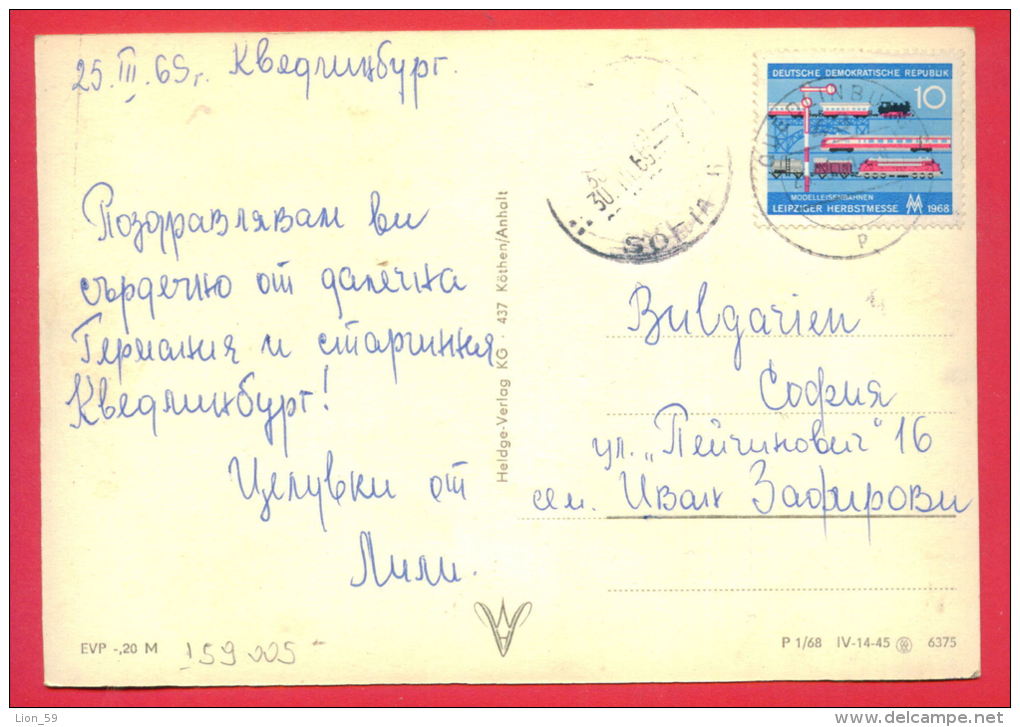 25.III.69г. Кведлинбург.
Поздравлявам ви
сърдечно от далечна
Германия и старинния
Кведлинбург!
Целувки от
Лили.
Heldge-Verlag KG · 437 Köthen/Anhalt
DEUTSCHE DEMOKRATISCHE REPUBLIK
10
MODELLEISENBAHNEN
LEIPZIGER HERBSTMESSE MM 1968
QUEDLINBURG
P
30
SOFIA
Bulgarien
София
ул. „Пейчинович" 16
сем. Иван Зафирови
EVP -,20 M
159005
P 1/68 IV-14-45 6375
Lion_59
delcampe.net